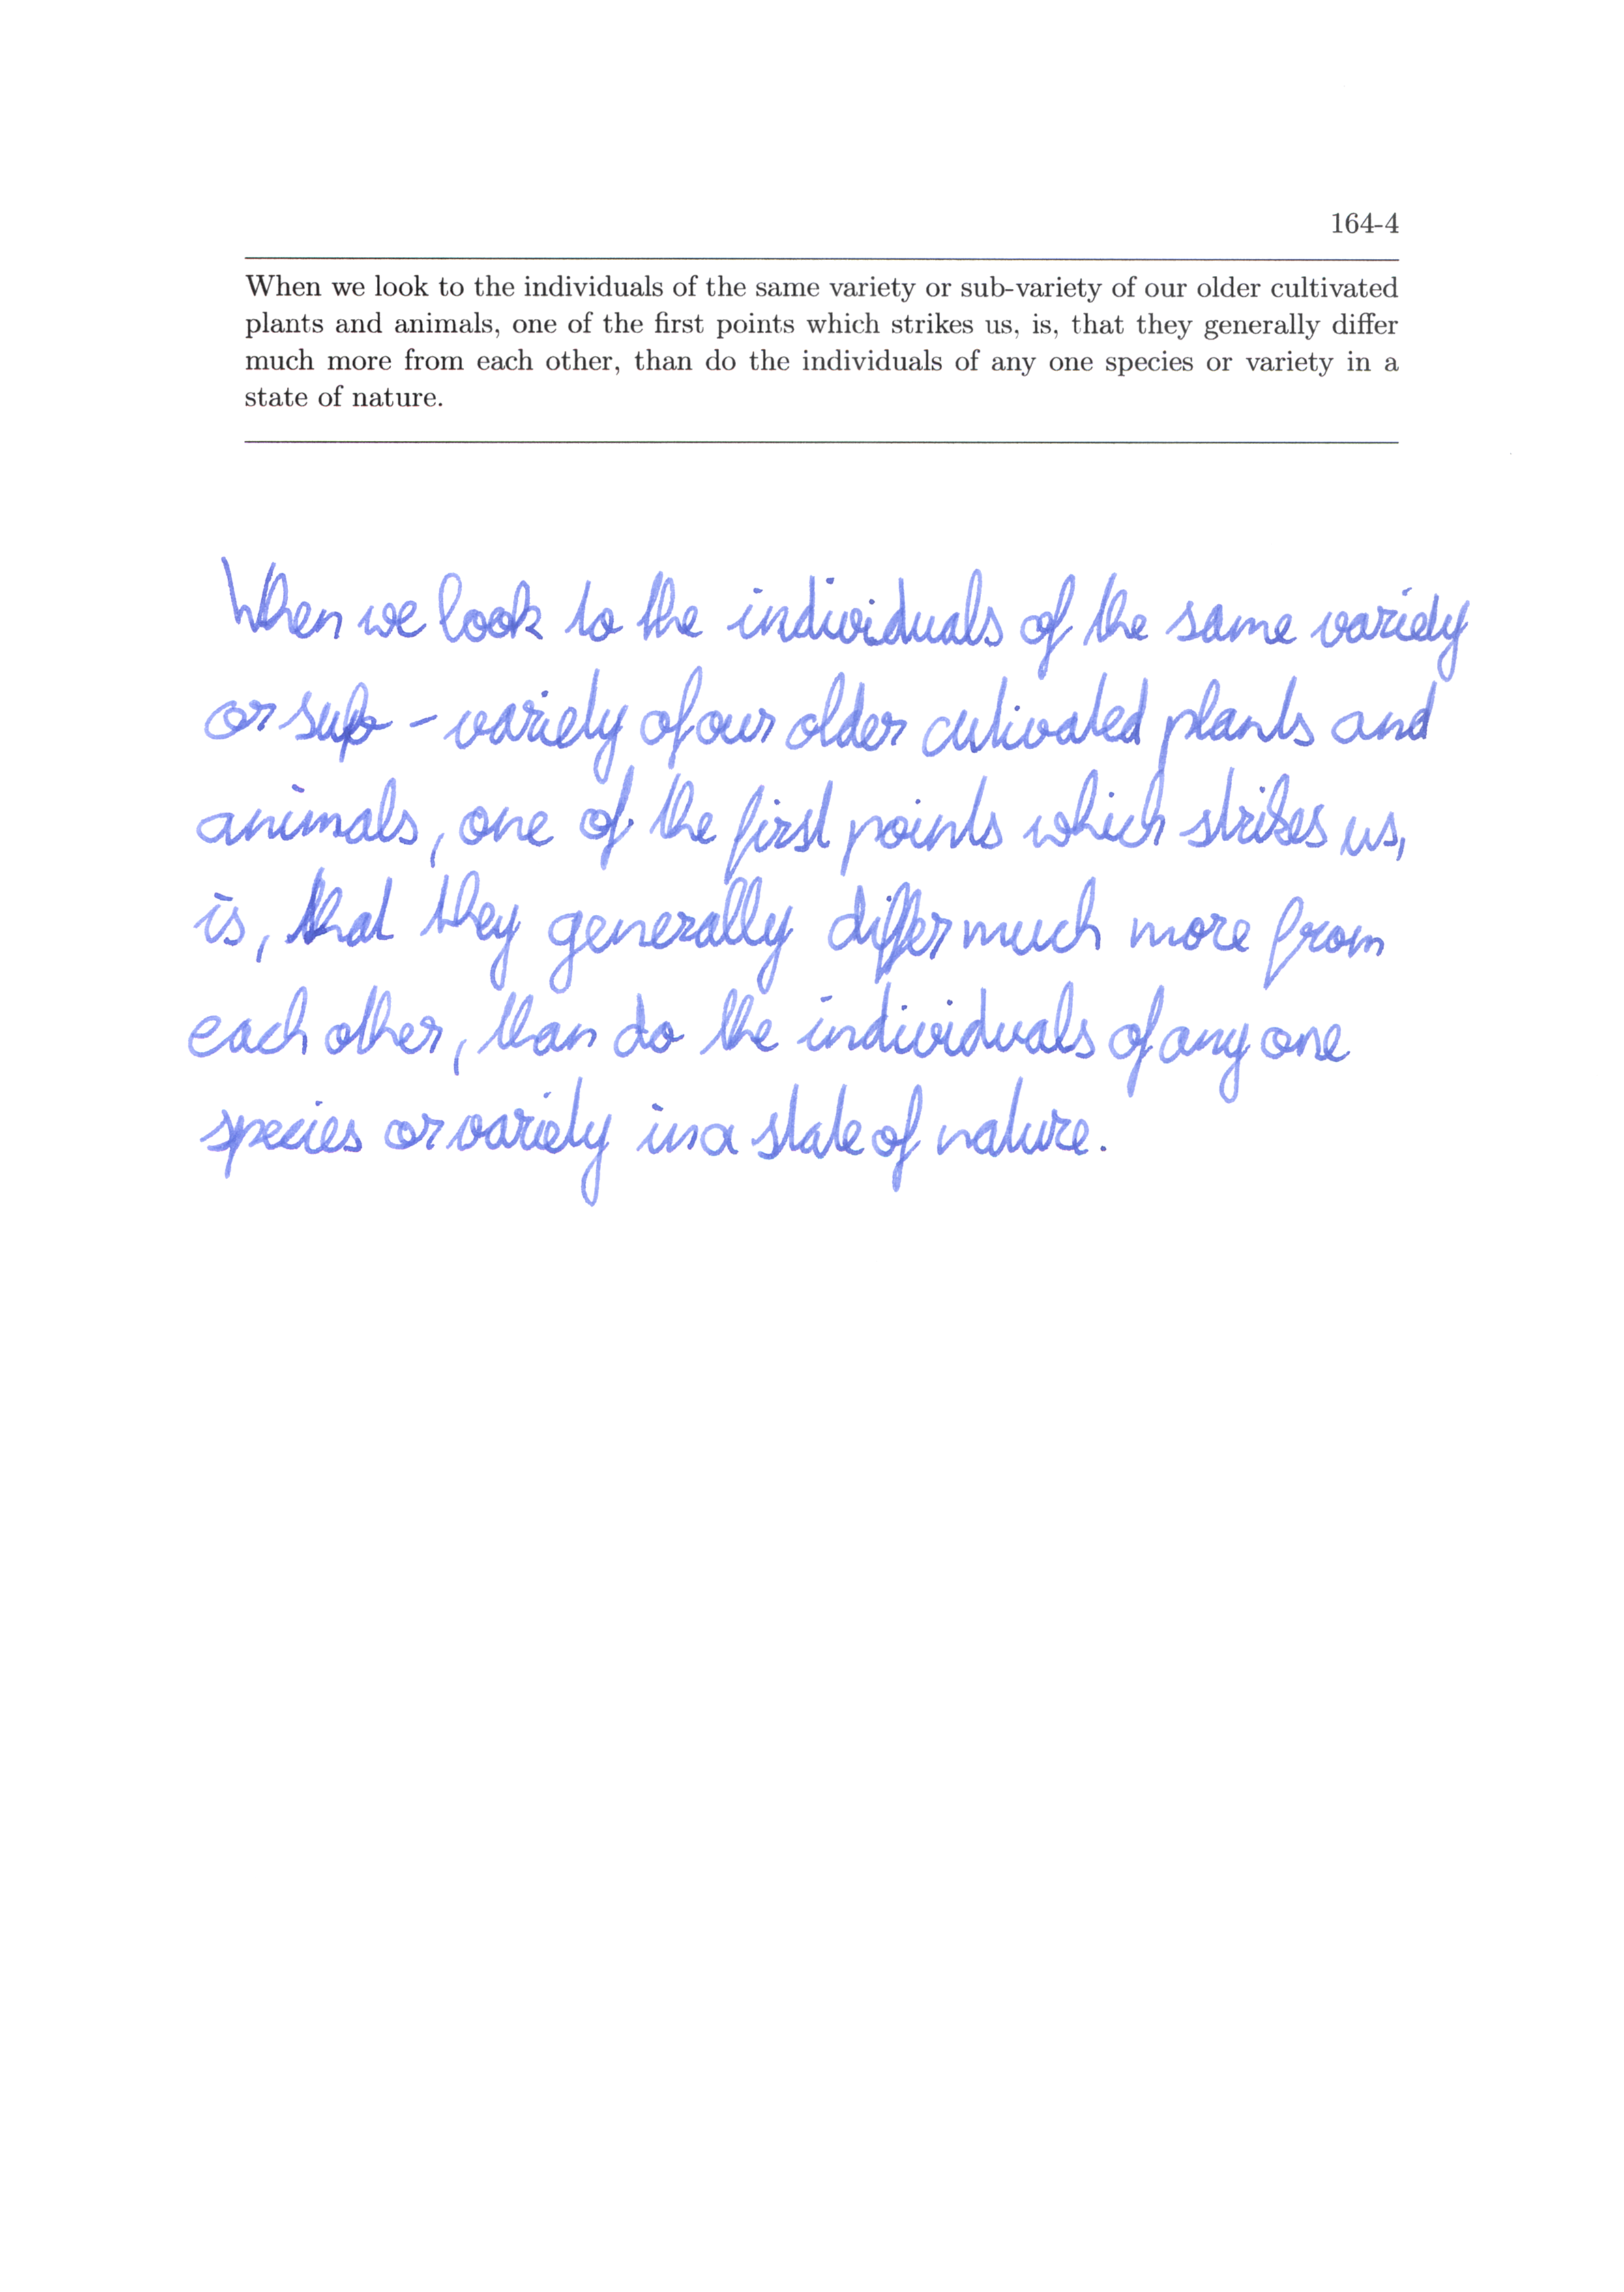 164-4
When we look to the individuals of the same variety or sub-variety of our older cultivated
plants and animals, one of the first points which strikes us, is, that they generally differ
much more from each other, than do the individuals of any one species or variety in a
state of nature.
When we look to the individuals of the same variety
or sub - variety of our older cultivated plants and
animals, one of the first points which strikes us,
is, that they generally differ much more from
each other, than do the individuals of any one
species or variety in a state of nature.